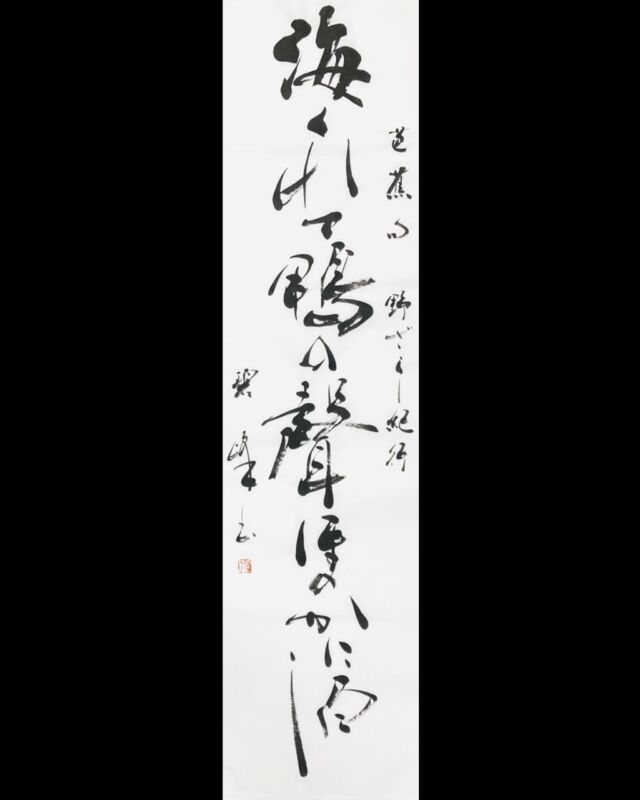 芭蕉句 野ざらし紀行
海くれて鴨の聲ほのかに白し
碧峰